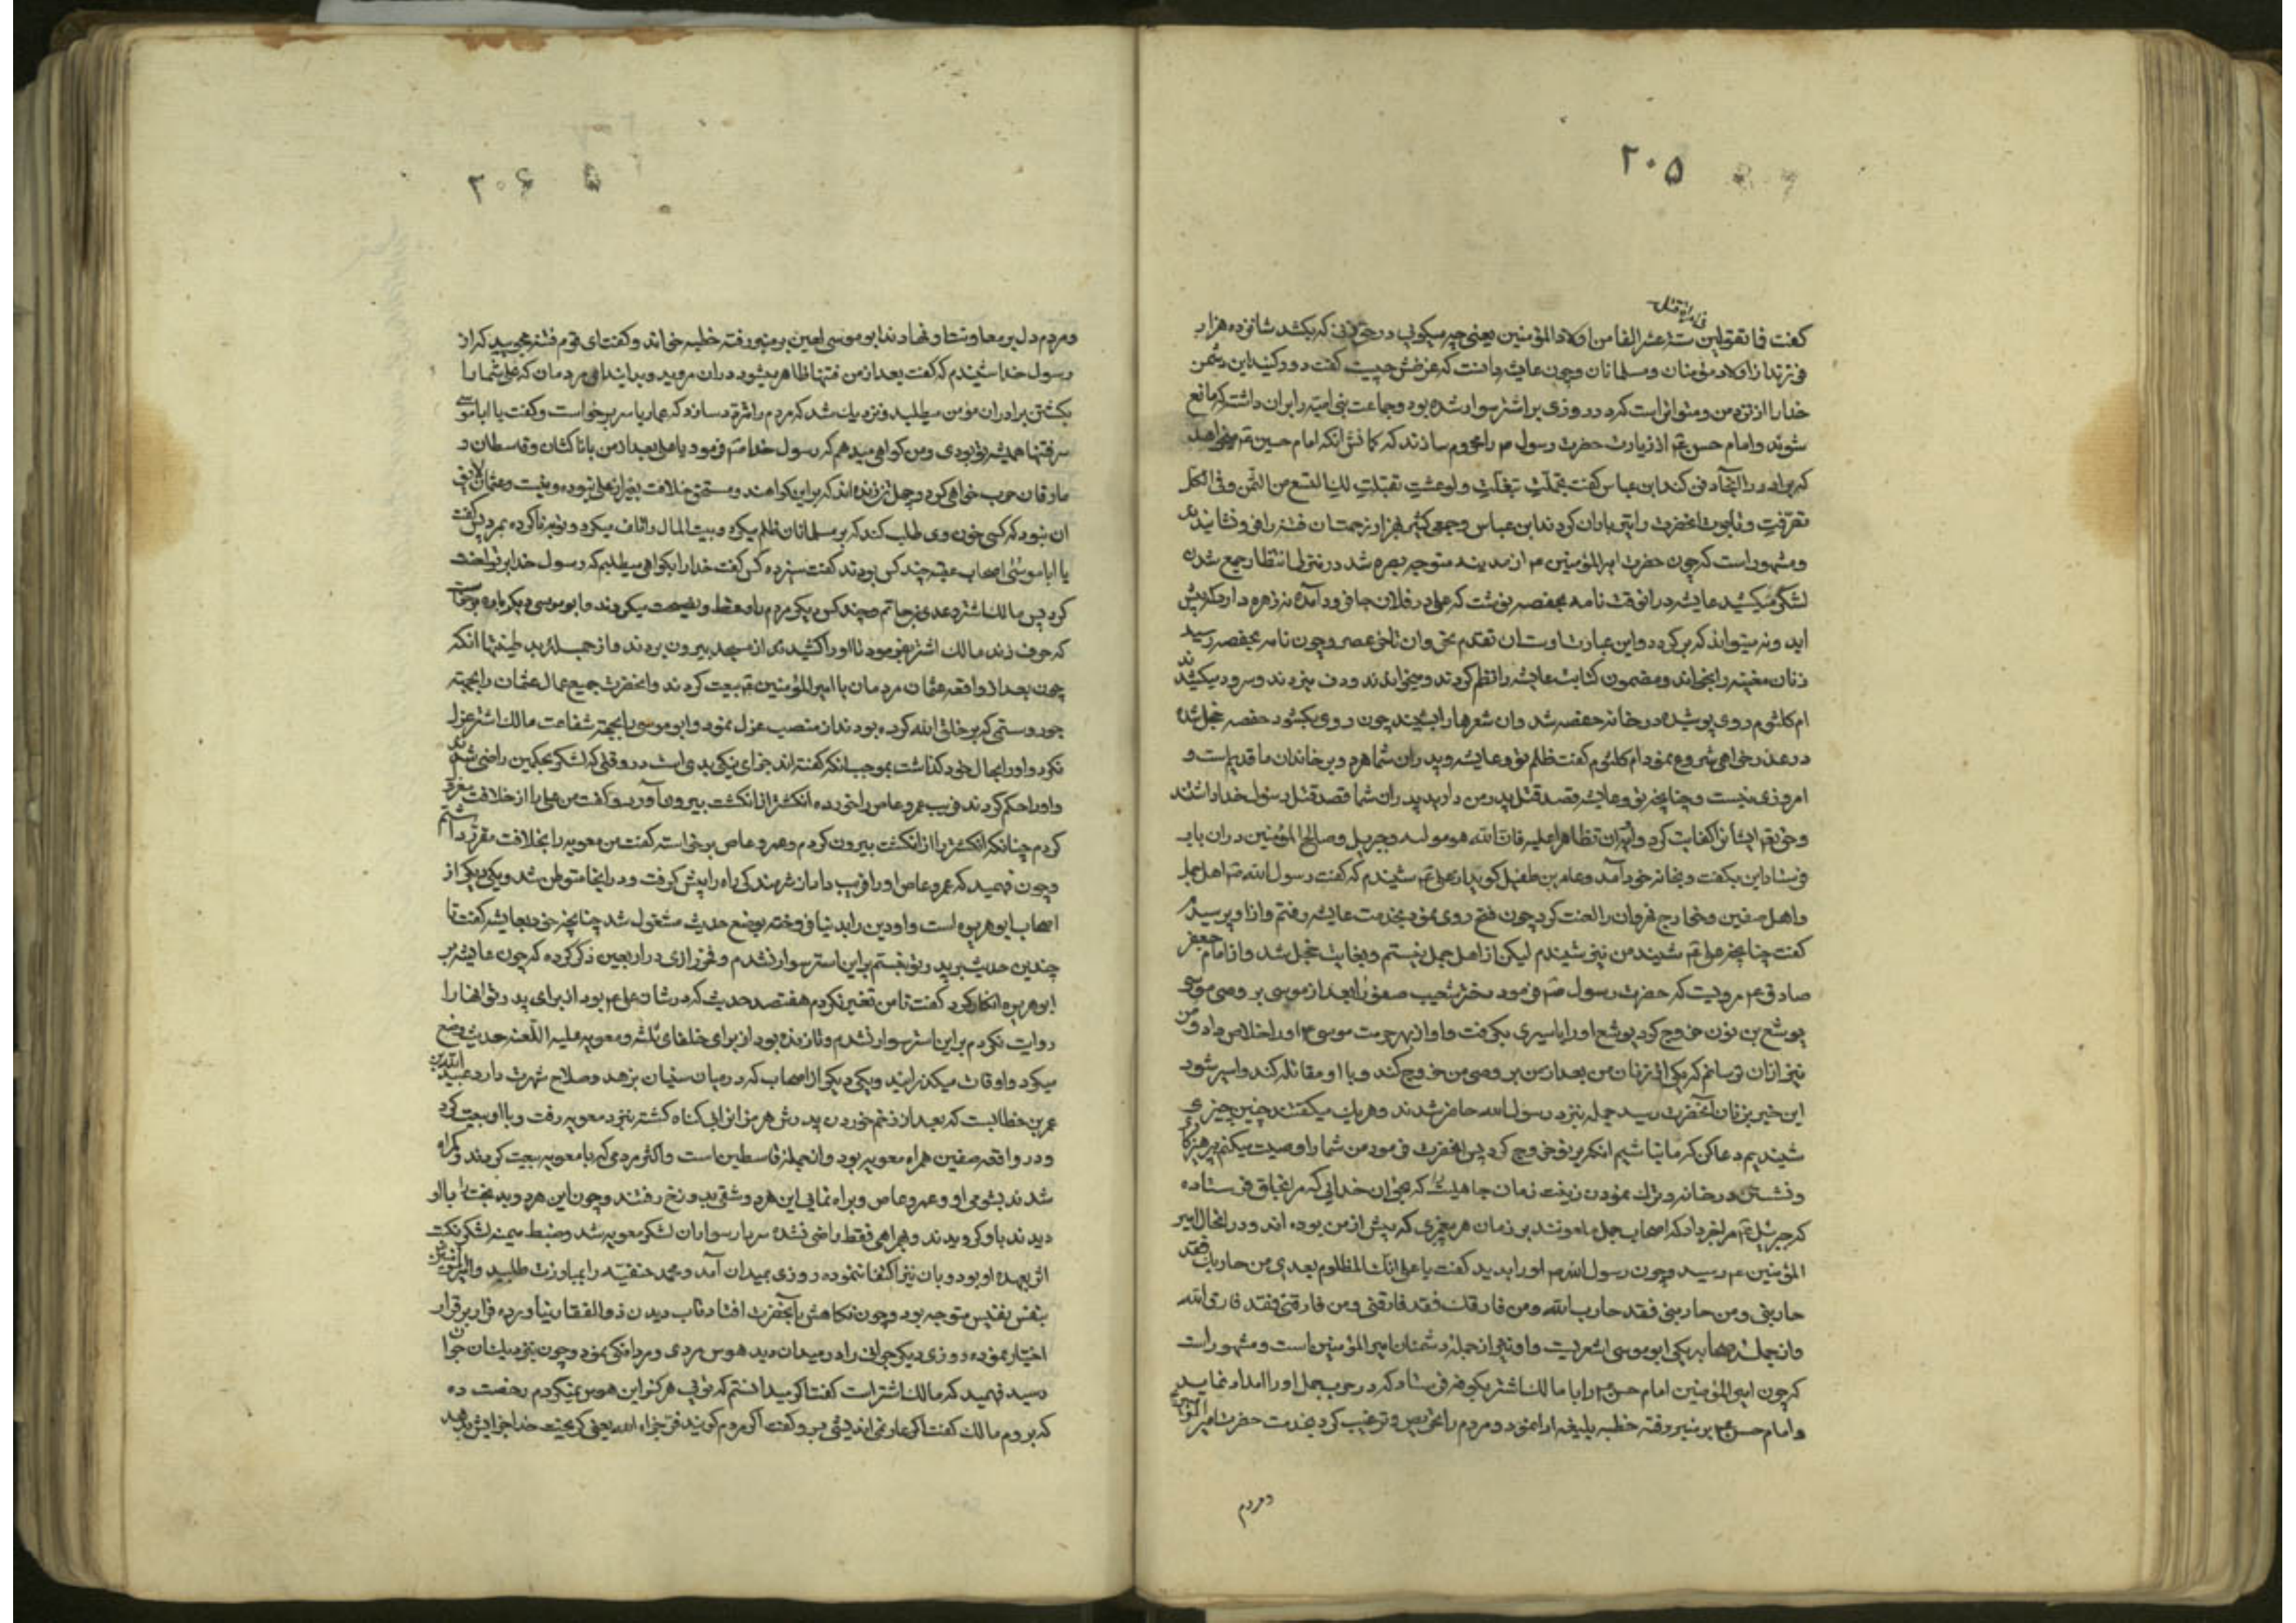 ۲۰۵
فی امراة قتلت
گفت فا تقولین ستة عشر الفا من اولاد المؤمنین یعنی چه میکوئی در حق زنی که بکشد شانزده هزار
فرزند از اولاد مؤمنان و مسلمانان و چون عایشه دانست که غرضش چیست گفت دور کنید این دشمن
خدا را از نزد من و متواتر است که در روزی بر استر سوار شده بود و جماعت بنی امیه را بران داشت که مانع
شوند و امام حسن ع از زیارت حضرت رسول ص را محروم سازند که کمانش انکه امام حسین ع میخواهد
که برادر را انجا دفن کند ابن عباس گفت تجملت تبغلت و لو عشت تفیلت لک التسع من الثمن و فی الکل
تصرفت و تابوت انحضرت را تیر باران کردند ابن عباس و جمعی کثیر هزار زحمت ان فتنه را فرو نشانیدند
و مشهور است که چون حضرت امیر المؤمنین ع از مدینه متوجه بصره شد در منزلی انتظار جمع شدن
لشکر میکشید عایشه در انوقت نامه بحفصه نوشت که علی در فلان جا فرود آمده نه زهره دارد که پیش
اید و نه میتواند که برگردد و این عبارت اوست ان تقدم نحر و ان تاخر عصر و چون نامه بحفصه رسید
زنان مغنیه را بخواند و مضمون کتابت عایشه را نظم کردند و میخواندند و دف میزدند و سرود میکشیدند
ام کلثوم روی پوشیده در خانه حفصه شد و ان شعرها را بشنید چون روی بکشود حفصه خجل شده
در عذر خواهی شروع نمود ام کلثوم گفت ظلم تو و عایشه و پدران شما هر دو بر خاندان ما قدیم است و
امروزی نیست و چنانچه تو و عایشه قصد قتل پدر من دارید پدران شما قصد قتل رسول خدا داشتند
و حق تع ایشانرا کفایت کرد و ان تظاهرا علیه فان الله هو مولیه و جبریل و صالح المؤمنین در ان باب
فرستاد این بکفت و بخانه خود آمد و عامر بن طفیل گوید از علی ع شنیدم که گفت رسول الله ص اهل جمل
و اهل صفین و خوارج نهروان را لعنت کرد چون فتح روی نمود بخدمت عایشه رفتم و از او پرسیدم
گفت چنانچه علی ع شنیده من نیز شنیدم لیکن از اهل جمل نیستم و بغایت خجل شد و از امام جعفر
صادق ع مرویست که حضرت رسول ص فرمود دختر شعیب صفورا بعد از موسی بر وصی موسی
یوشع بن نون خروج کرد یوشع او را باسیری بگرفت و او از بهر حرمت موسی ع او را خلاص داد و من
نیز ازان ترسانم که یکی از زنان من بعد از من بر وصی من خروج کند و با او مقاتله کند و اسیر شود
این خبر بزنان آنحضرت رسید جمله بنزد رسول الله حاضر شدند و هریک میگفتند چنین چیزی
شنیدیم دعا کن که ما نباشیم انکه بر تو خروج کرد پس انحضرت فرمود من شما را وصیت میکنم بپرهیزکاری
و نشستن در خانه و ترک نمودن زینت زمان جاهلیت که بحق ان خدایی که مرا بحق فرستاده
که جبرئیل ع مرا خبر داد که اصحاب جمل ملعونند بر زبان هر پیغمبری که پیش از من بوده اند و در انحال امیر
المؤمنین ع رسید و چون رسول الله ص او را بدید گفت یا علی انت المظلوم بعدی من حاربک فقد
حاربنی و من حاربنی فقد حارب الله و من فارقک فقد فارقنی و من فارقنی فقد فارق الله
و از جمله صحابه یکی ابو موسی اشعریست و او نیز از جمله دشمنان امیر المؤمنین است و مشهور است
که چون امیر المؤمنین امام حسن ع را با مالک اشتر بکوفه فرستاد که در حرب جمل او را امداد نمایند
و امام حسن ع بر منبر رفته خطبه بلیغه ادا نمود و مردم را تحریص و ترغیب کرد بخدمت حضرت امیر المؤمنین
و مردم
۲۰۶
و مردم دل بر معاونت او نهادند ابو موسی لعین بر منبر رفته خطبه خواند و گفت ای قوم فتنه مجویید که از
رسول خدا شنیدم که گفت بعد از من فتنها ظاهر میشود در ان مروید و بدانید ای مردمان که علی شما را
بکشتن برادران مؤمن میطلبد و نزدیک شد که مردم را متفرق سازد که عمار یاسر برخواست و گفت یا ابا موسی
سر فتنها همیشه تو بودی و من گواهی میدهم که رسول خدا ص فرمود یا علی بعد از من با ناکثان و قاسطان و
مارقان حرب خواهی کرد و چهل تن زنده اند که بر این گواهند و مستحق خلافت بغیر از علی نبوده و نیست و عثمان لایق
ان نبود که کسی خون وی طلب کند که بر مسلمانان ظلم میکرد و بیت المال را تلف میکرد و توبه ناکرده بمرد پس گفت
یا ابا موسی اصحاب عقبه چند کس بودند گفت سیزده کس گفت خدا را بگواهی میطلبم که رسول خدا بر تو لعنت
کرد پس مالک اشتر و عدی بن حاتم و چند کس دیگر مردم را وعظ و نصیحت میکردند و ابو موسی دیگر باره برخواست
که حرف زند مالک اشتر بفرمود تا او را کشیده از مسجد بیرون بردند و از جمله بد طینتیها انکه
چون بعد از واقعه عثمان مردمان با امیر المؤمنین ع بیعت کردند و انحضرت جمیع عمال عثمان را بجهة
جور و ستمی که بر خلق الله کرده بودند از منصب عزل نمود و ابو موسی را بجهة شفاعت مالک اشتر عزل
نکرد و او را بحال خود گذاشت بموجب انکه گفته اند جزای نیکی بدی است در وقتی که لشکر بحکمین راضی شدند
و او را حکم کردند فریب عمرو عاص را خورده انگشتر از انگشت بیرون آورد و گفت من علی را از خلافت معزول
کردم چنانکه انگشتر را از انگشت بیرون کردم و عمرو عاص برخواسته گفت من معویه را بخلافت مقرر داشتم
و چون فهمید که عمرو عاص او را فریب داده از شرمندگی راه را پیش گرفت و در انجا متوطن شد و یکی دیگر از
اصحاب ابو هریره است و او دین را بدنیا فروخته بوضع حدیث مشغول شد چنانچه خود بعایشه گفت تا
چندین حدیث بر پدر تو نبستم بر این استر سوار نشدم و فخر رازی در اربعین ذکر کرده که چون عایشه بر
ابو هریره انکار کرد گفت تا من تغییر نکردم هفتصد حدیث که در شان علی ع بود از برای پدر تو انها را
روایت نکردم بر این استر سوار نشدم و تا زنده بود از برای خلفای ثلثه و معویه علیه اللعنه حدیث وضع
میکرد و اوقات میگذرانید و یکی دیگر از اصحاب که در میان سنیان بزهد و صلاح شهرت دارد عبید الله بن
عمر بن خطابست که بعد از زخم خوردن پدرش هرمزان را بی گناه کشته بنزد معویه رفت و با او بیعت کرد
و در واقعه صفین همراه معویه بود و از جمله قاسطین است و اکثر مردمی که با معویه بیعت کردند و گمراه
شدند بشومی او و عمرو عاص و براه نمایی این هر دو شقی بدوزخ رفتند و چون این هر دو بدبخت را با او
دیدند باو گرویدند و بهمراهی فقط راضی نشده سردار سواران لشکر معویه شد و ضبط میمنه لشکر نکبت
اثر بعهده او بود و بان نیز اکتفا ننموده روزی بمیدان آمد و محمد حنفیه را بمبارزت طلبید و امیر المؤمنین
بنفس نفیس متوجه بود و چون نگاهش بانحضرت افتاد تاب دیدن ذو الفقار نیاورده فرار بر قرار
اختیار نموده روزی دیگر جوانی را در میدان دید هوس مردی و مردانگی نمود و چون بنزدیک ان جوان
رسید فهمید که مالک اشتر است گفت اگر میدانستم که تویی هرگز این هوس نمیکردم رخصت ده
که بروم مالک گفت اگر عار نمی اندیشی برو گفت اگر مردم گویند فرّ جزاه الله یعنی گریخت خدا جزایش بدهد